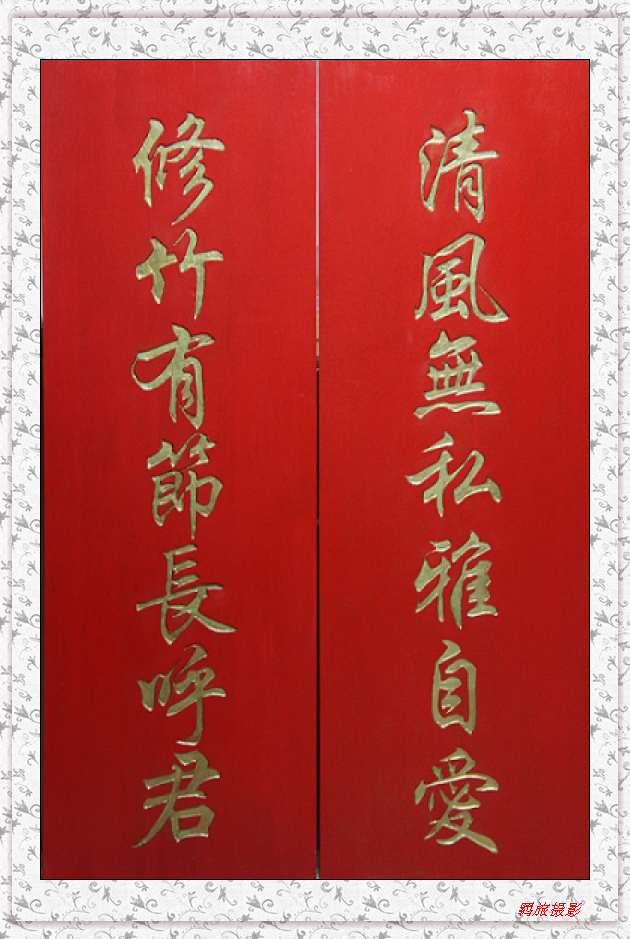 清風無私雅自愛
修竹有節長呼君
羁旅摄影